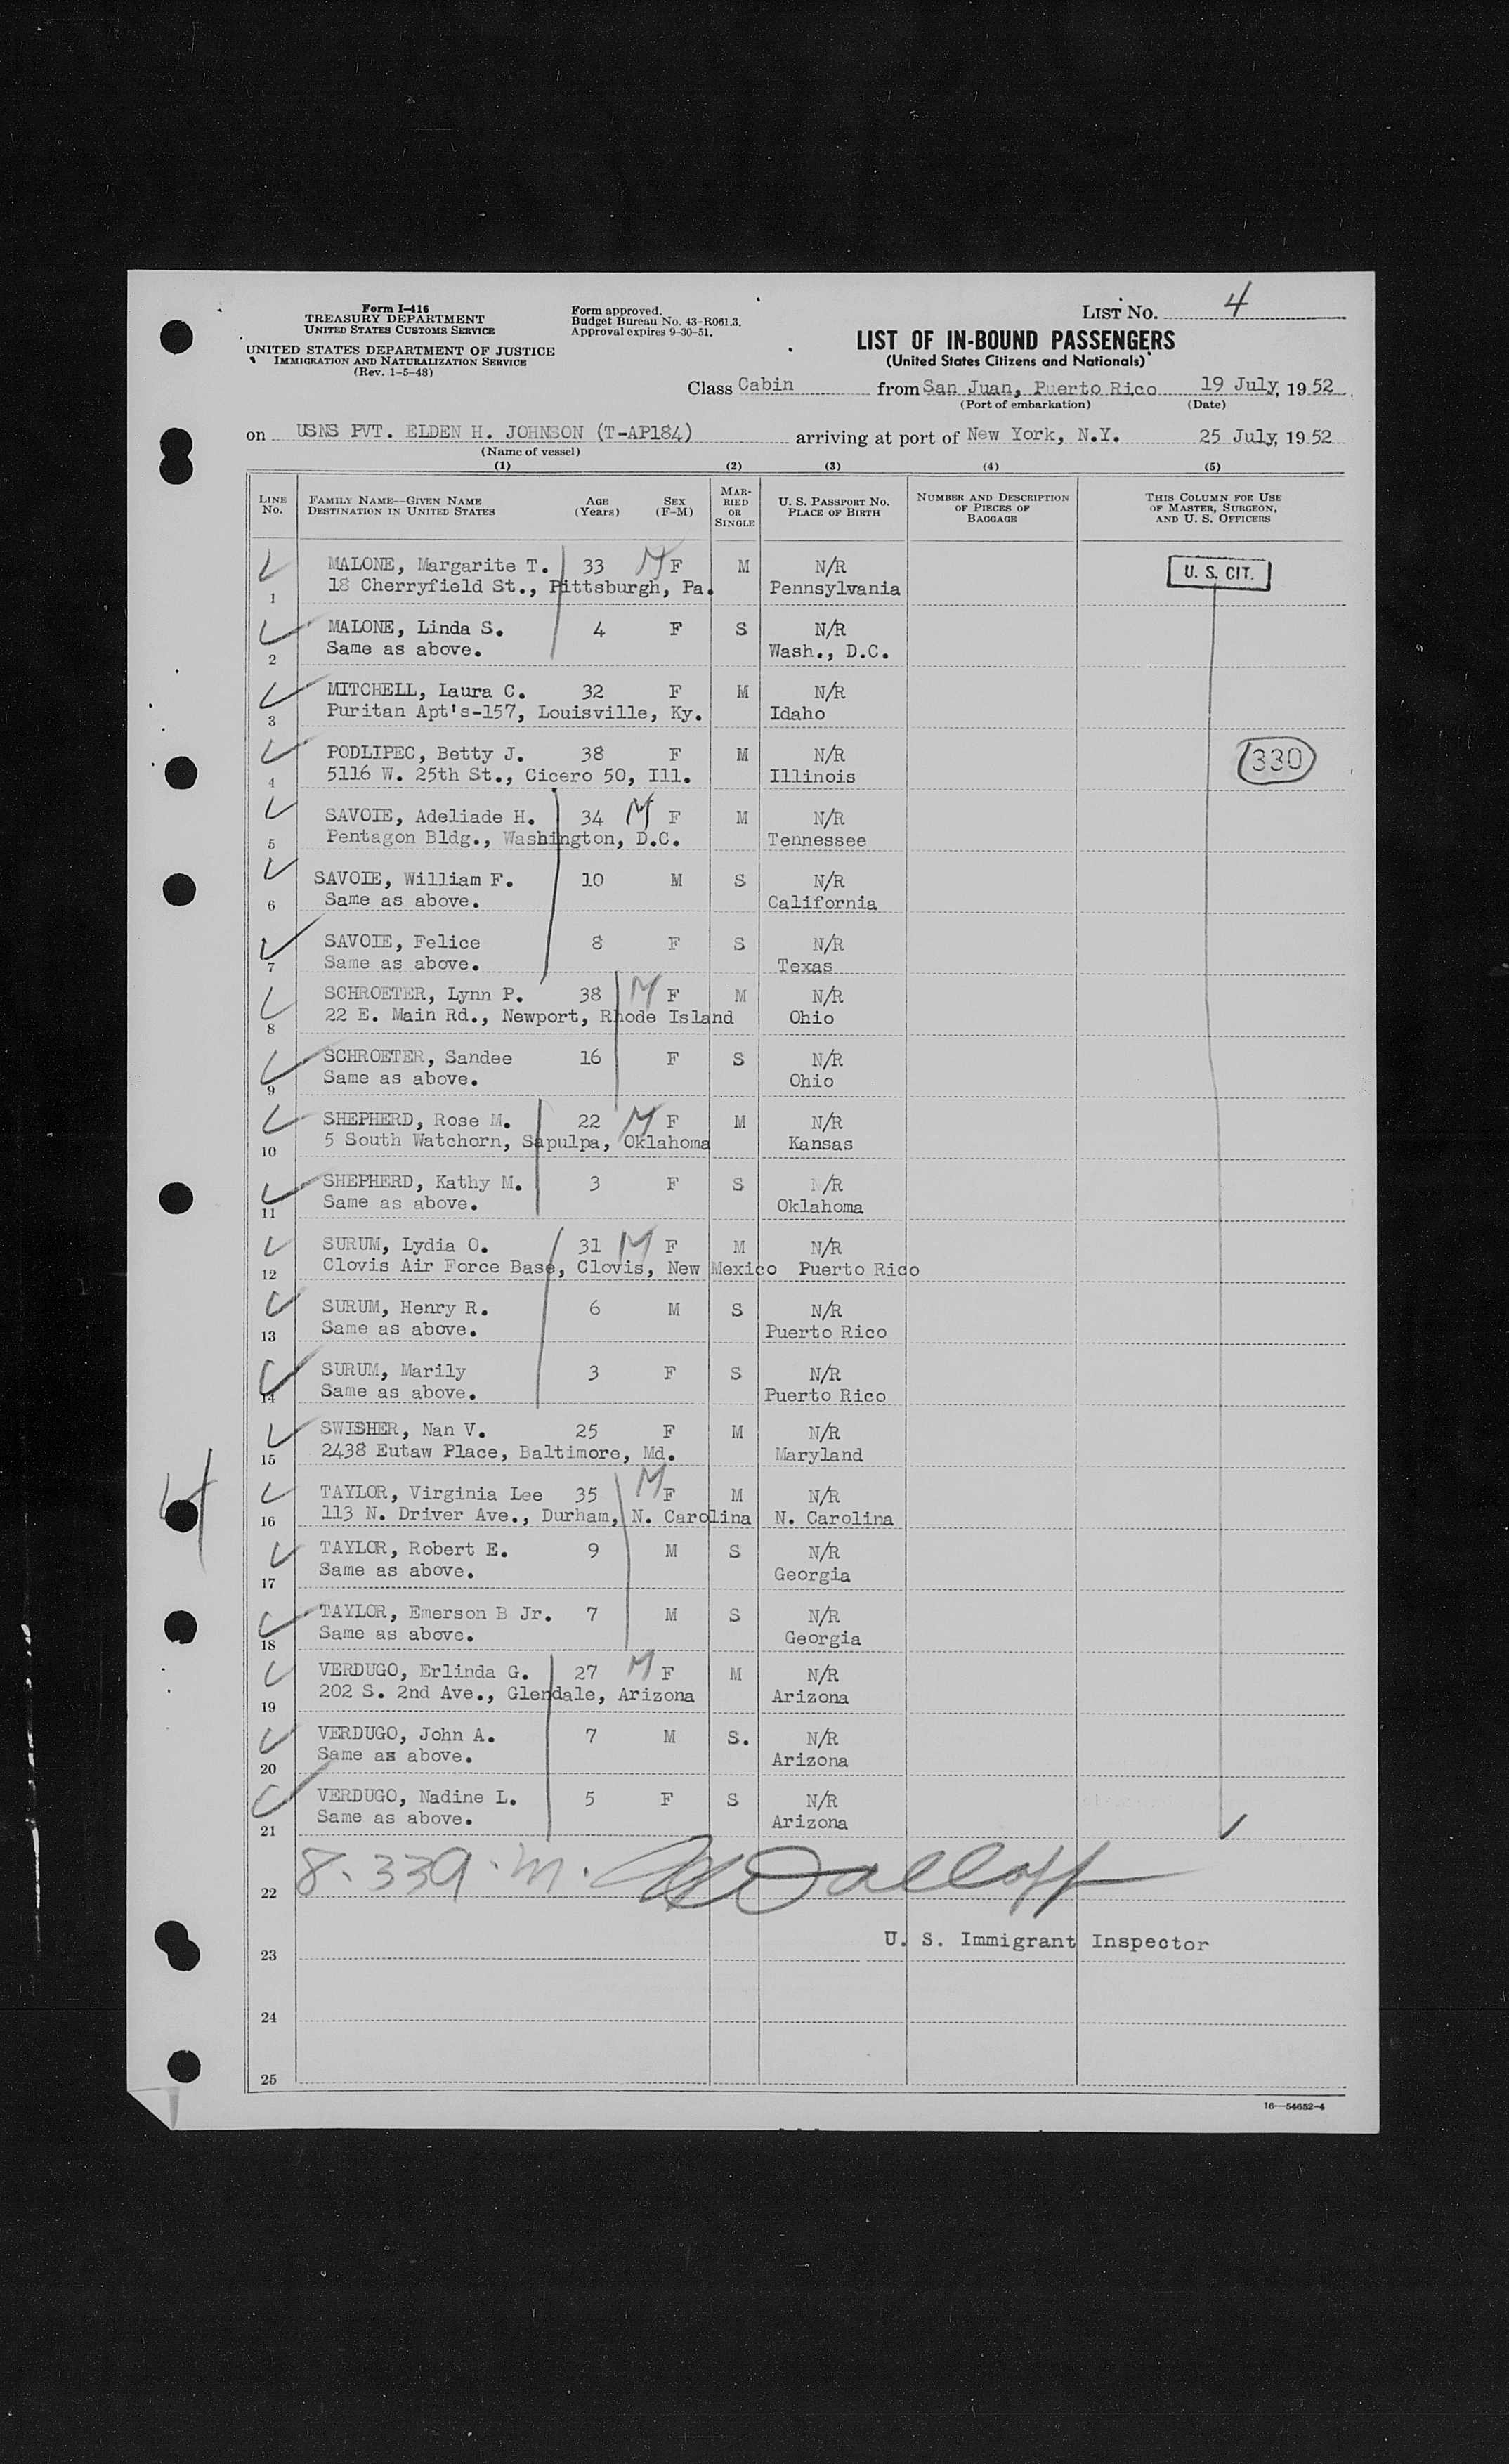 Form I-416
TREASURY DEPARTMENT
UNITED STATES CUSTOMS SERVICE
UNITED STATES DEPARTMENT OF JUSTICE
IMMIGRATION AND NATURALIZATION SERVICE
(Rev. 1-5-48)
Form approved.
Budget Bureau No. 43-R061.3.
Approval expires 9-30-51.
LIST No. 4
LIST OF IN-BOUND PASSENGERS
(United States Citizens and Nationals)
Class Cabin from San Juan, Puerto Rico 19 July, 1952
(Port of embarkation) (Date)
on USNS PVT. ELDEN H. JOHNSON (T-AP184) arriving at port of New York, N.Y. 25 July, 1952
(Name of vessel)
(1) (2) (3) (4) (5)
LINE No. FAMILY NAME—GIVEN NAME DESTINATION IN UNITED STATES AGE (Years) SEX (F-M) MARRIED OR SINGLE U. S. PASSPORT No. PLACE OF BIRTH NUMBER AND DESCRIPTION OF PIECES OF BAGGAGE THIS COLUMN FOR USE OF MASTER, SURGEON, AND U. S. OFFICERS
MALONE, Margarite T. 33 M F M N/R U. S. CIT.
1 18 Cherryfield St., Pittsburgh, Pa. Pennsylvania
MALONE, Linda S. 4 F S N/R
2 Same as above. Wash., D.C.
MITCHELL, Laura C. 32 F M N/R
3 Puritan Apt's-157, Louisville, Ky. Idaho
PODLIPEC, Betty J. 38 F M N/R 330
4 5116 W. 25th St., Cicero 50, Ill. Illinois
SAVOIE, Adeliade H. 34 M F M N/R
5 Pentagon Bldg., Washington, D.C. Tennessee
SAVOIE, William F. 10 M S N/R
6 Same as above. California
SAVOIE, Felice 8 F S N/R
7 Same as above. Texas
SCHROETER, Lynn P. 38 M F M N/R
8 22 E. Main Rd., Newport, Rhode Island Ohio
SCHROETER, Sandee 16 F S N/R
9 Same as above. Ohio
SHEPHERD, Rose M. 22 M F M N/R
10 5 South Watchorn, Sapulpa, Oklahoma Kansas
SHEPHERD, Kathy M. 3 F S N/R
11 Same as above. Oklahoma
SURUM, Lydia O. 31 M F M N/R
12 Clovis Air Force Base, Clovis, New Mexico Puerto Rico
SURUM, Henry R. 6 M S N/R
13 Same as above. Puerto Rico
SURUM, Marily 3 F S N/R
14 Same as above. Puerto Rico
SWISHER, Nan V. 25 F M N/R
15 2438 Eutaw Place, Baltimore, Md. Maryland
TAYLOR, Virginia Lee 35 M F M N/R
16 113 N. Driver Ave., Durham, N. Carolina N. Carolina
TAYLOR, Robert E. 9 M S N/R
17 Same as above. Georgia
TAYLOR, Emerson B Jr. 7 M S N/R
18 Same as above. Georgia
VERDUGO, Erlinda G. 27 M F M N/R
19 202 S. 2nd Ave., Glendale, Arizona Arizona
VERDUGO, John A. 7 M S. N/R
20 Same as above. Arizona
VERDUGO, Nadine L. 5 F S N/R
21 Same as above. Arizona
22 8.339.m.
23 U. S. Immigrant Inspector
24
25
4
16—54652-4